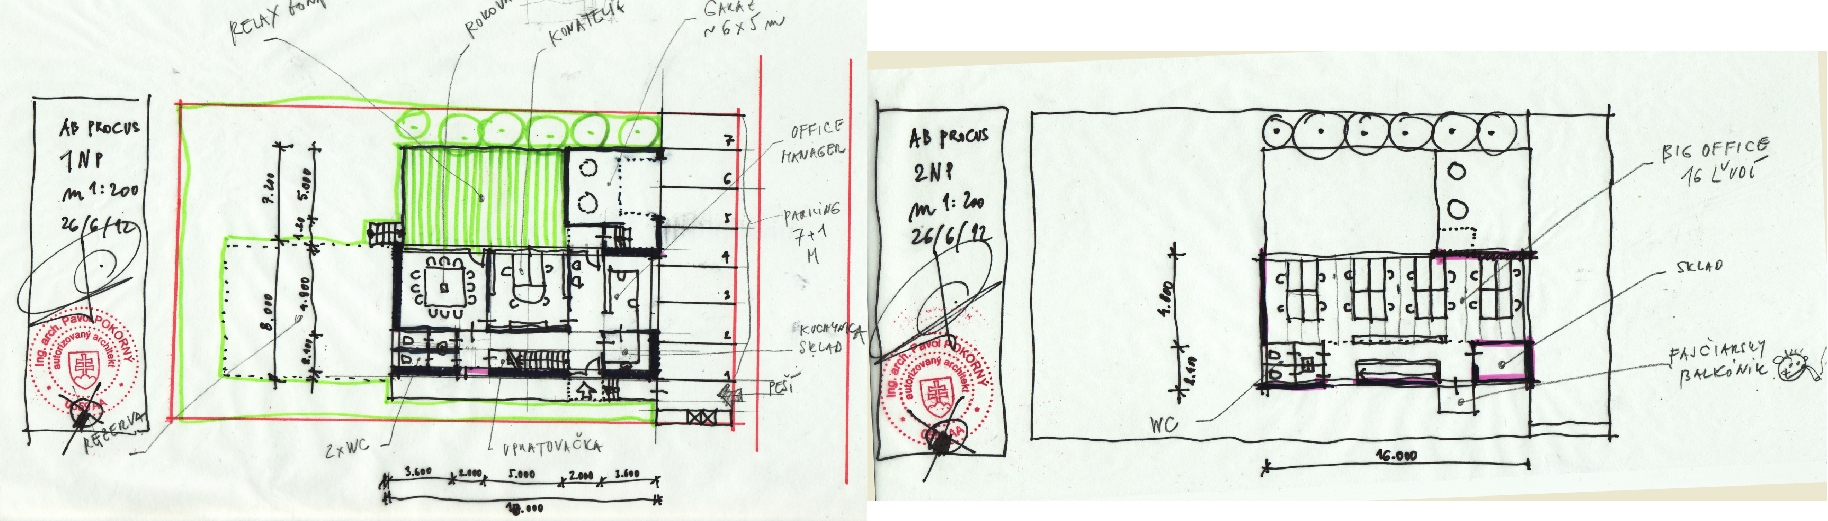 RELAX
KONATELIA
GARÁŽ
~6x5 m
AB PROCUS
1NP
m 1:200
26/6/12
Ing. arch. Pavol POKORNÝ
autorizovaný architekt
REZERVA
7.200
5.000
8.000
4.800
2.400
7
6
5
4
3
2
1
OFFICE
MANAGER
PARKING
7+1
M
KUCHYNKA
SKLAD
PEŠÍ
2xWC
UPRATOVAČKA
3.600
2.000
5.000
2.000
3.600
AB PROCUS
2NP
m 1:200
26/6/12
Ing. arch. Pavol POKORNÝ
autorizovaný architekt
BIG OFFICE
16 ĽUDÍ
SKLAD
FAJČIARSKY
BALKÓNIK
WC
4.800
2.400
16.000